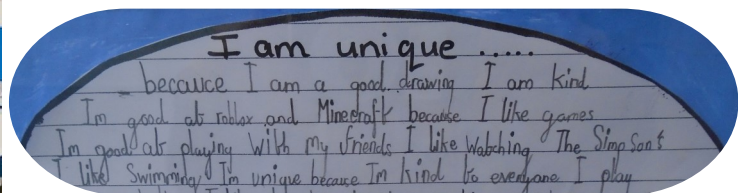 I am unique .....
becauce I am a good drawing I am kind
Im good at roblox and Minecraft because I like games
Im good at playing with my friends I like watching The Simpsons
I like Swimming Im unique because Im kind to everyone I play